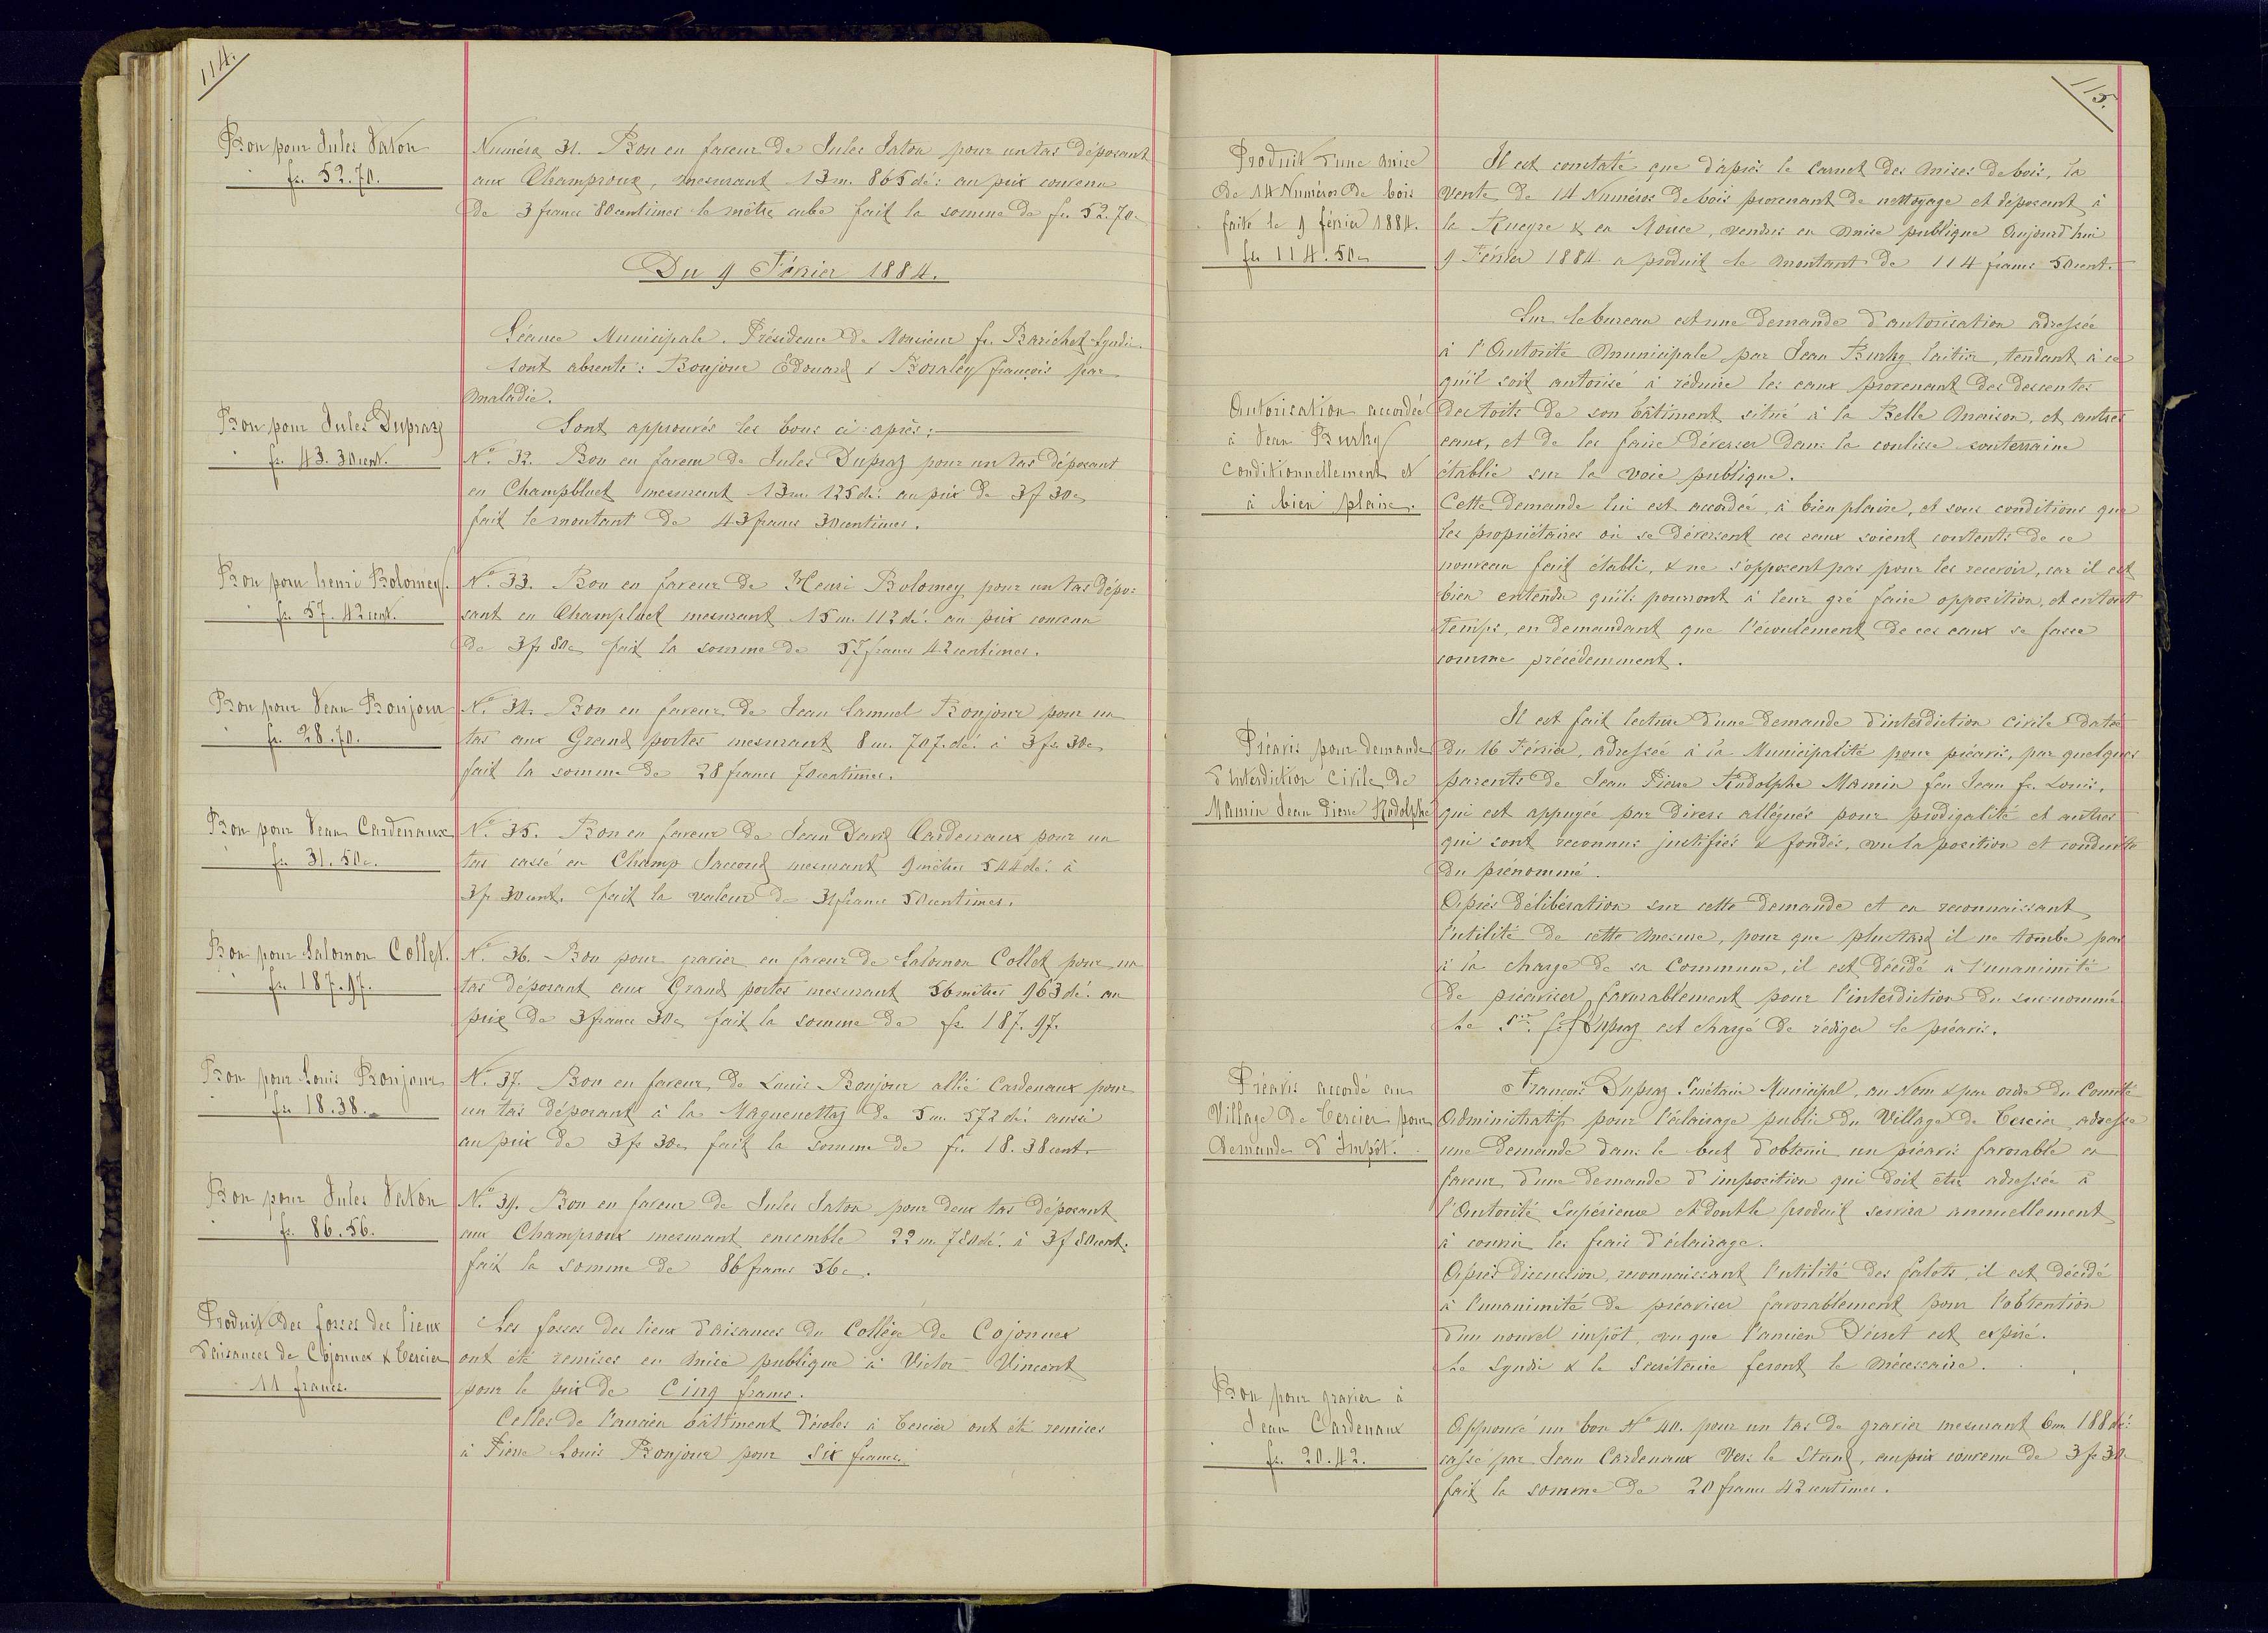 114.
Bon pour Jules Jaton
fr. 52.70.
Numéro 31. Bon en faveur de Jules Jaton pour un tas déposant
aux Champroux, mesurant 13 m. 865 dé: au prix convenu
de 3 francs 80 centimes le mètre cube fait la somme de fr. 52.70c
Du 9 Février 1884.
Séance Municipale. Présidence de Monsieur fs. Barichet Syndic.
sont absents : Bonjour Édouard & Bovaley François par
maladie.
Sont approuvés les bons ci-après :
Bon pour Jules Dupraz
fr. 43. 30 cent.
No. 32. Bon en faveur de Jules Dupraz pour un tas déposant
en Champbluet mesurant 13 m. 125 dé: au prix de 3 f 30c
fait le montant de 43 francs 30 centimes.
Bon pour henri Bolomey.
fr. 57. 42 cent.
No. 33. Bon en faveur de Henri Bolomey pour un tas dépo:
sant en Champluet mesurant 15 m. 112 dé: au prix convenu
de 3 fr 80c fait la somme de 57 francs 42 centimes.
Bon pour Jean Bonjour
fr. 28.70.
No. 34. Bon en faveur de Jean Samuel Bonjour pour un
tas aux Grand portes mesurant 8 m. 707. dé: à 3 fr. 30c
fait la somme de 28 francs 70 centimes.
Bon pour Jean Cardenaux
fr. 31. 50c.
No. 35. Bon en faveur de Jean David Cardenaux pour un
tas cassé en Champ Jaccoud mesurant 9 mètres 544 dé: à
3 fr 30 cent. fait la valeur de 31 francs 50 centimes.
Bon pour Salomon Collet.
fr. 187.97.
No. 36. Bon pour gravier en faveur de Salomon Collet pour un
tas déposant aux Grand portes mesurant 56 mètres 963 dé: au
prix de 3 francs 30c fait la somme de fr. 187.97.
Bon pour Louis Bonjour
fr. 18.38.
No. 37. Bon en faveur de Louis Bonjour allié Cardenaux pour
un tas déposant à la Maguenettaz de 5 m. 572 dé: aussi
au prix de 3 fr 30c fait la somme de fr. 18. 38 cent.
Bon pour Jules Jaton
fr. 86.56.
No. 39. Bon en faveur de Jules Jaton pour deux tas déposant
aux Champroux mesurant ensemble 22 m. 780 dé: à 3 f 80 cent.
fait la somme de 86 francs 56c.
Produit des fosses des lieux
d'aisances de Cojonnex & Cercier
11 francs.
Les fosses des lieux d'aisances du Collège de Cojonnex
ont été remises en mise publique à Victor Vincent
pour le prix de Cinq francs.
Celles de l'ancien bâtiment d'écoles à Cercier ont été remises
à Pierre Louis Bonjour pour Six francs.
115.
Produit d'une mise
de 14 Numéros de bois
faite le 9 février 1884.
fr. 114.50c
Il est constaté que d'après le carnet des mises de bois, la
vente de 14 Numéros de bois provenant de nettoyage et déposant à
la Rueyre & en Mouce, vendus en mise publique Aujourd'hui
9 Février 1884 a produit le montant de 114 francs 50 cent.
Sur le bureau est une demande d'autorisation adressée
à l'Autorité Municipale par Jean Burky laitier, tendant à ce
qu'il soit autorisé à réduire les eaux provenant des descentes
des toits de son bâtiment situé à la Belle Maison, et autres
eaux, et de les faire déverser dans la coulisse souterraine
établie sur la voie publique.
Autorisation accordée
à Jean Burky
Conditionnellement et
à bien plaire.
Cette demande lui est accordée, à bien plaire, et sous conditions que
les propriétaires où se déversent ces eaux soient contents de ce
nouveau fait établi, & ne s'opposent pas pour les recevoir, car il est
bien entendu qu'ils pourront à leur gré faire opposition, et en tout
temps, en demandant que l'écoulement de ces eaux se fasse
comme précédemment.
Préavis pour demande
d'Interdiction Civile de
Mamin Jean Pierre Rodolphe
Il est fait lecture d'une demande d'interdiction civile datée
du 16 Février, adressée à la Municipalité pour préavis, par quelques
parents de Jean Pierre Rodolphe Mamin feu Jean fs. Louis,
qui est appuyée par divers allégués pour prodigalité et autres
qui sont reconnus justifiés & fondés, vu la position et conduite
du prénommé.
Après délibération sur cette demande et en reconnaissant
l'utilité de cette mesure, pour que plus tard il ne tombe pas
à la charge de sa Commune, il est décidé à l'unanimité
de préaviser favorablement pour l'interdiction du sus-nommé.
Le Sre. fs. Dupraz est chargé de rédiger le préavis.
Préavis accordé au
Village de Cercier pour
demande d'Impôt.
François Dupraz Secrétaire Municipal, au Nom & par ordre du Comité
Administratif pour l'éclairage public du Village de Cercier, adresse
une demande dans le but d'obtenir un préavis favorable en
faveur d'une demande d'imposition qui doit être adressée à
l'Autorité Supérieure et dont le produit servira annuellement
à couvrir les frais d'éclairage.
Après discussion, reconnaissant l'utilité des falots, il est décidé
à l'unanimité de préaviser favorablement pour l'obtention
d'un nouvel impôt, vu que l'ancien Décret est expiré.
Le Syndic & le Secrétaire feront le nécessaire.
Bon pour gravier à
Jean Cardenaux
fr. 20.42.
Approuvé un bon No 40. pour un tas de gravier mesurant 6 m. 188 dé:
cassé par Jean Cardenaux Vers le Stand, au prix convenu de 3 fr 30c
fait la somme de 20 francs 42 centimes.